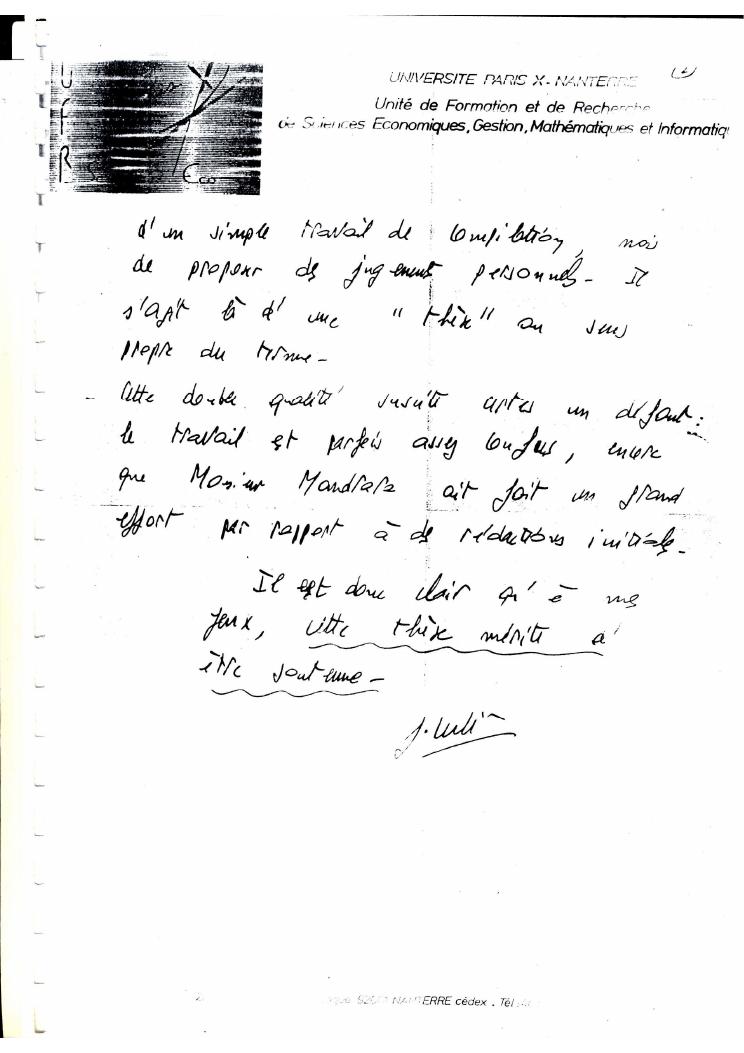 UNIVERSITE PARIS X - NANTERRE (2)
Unité de Formation et de Recherche
de Sciences Economiques, Gestion, Mathématiques et Informatiq
U
F
R Eco
d'un simple travail de compilation, mais
de proposer des jugements personnels - Il
s'agit là d'une "thèse" au sens
propre du terme -
Cette double qualité suscite certes un défaut :
le travail est parfois assez confus, encore
que Monsieur ait fait un grand
effort par rapport à des rédactions initiales -
Il est donc clair qu'à mes
yeux, cette thèse mérite d'
être soutenue -
NANTERRE cédex . Tél